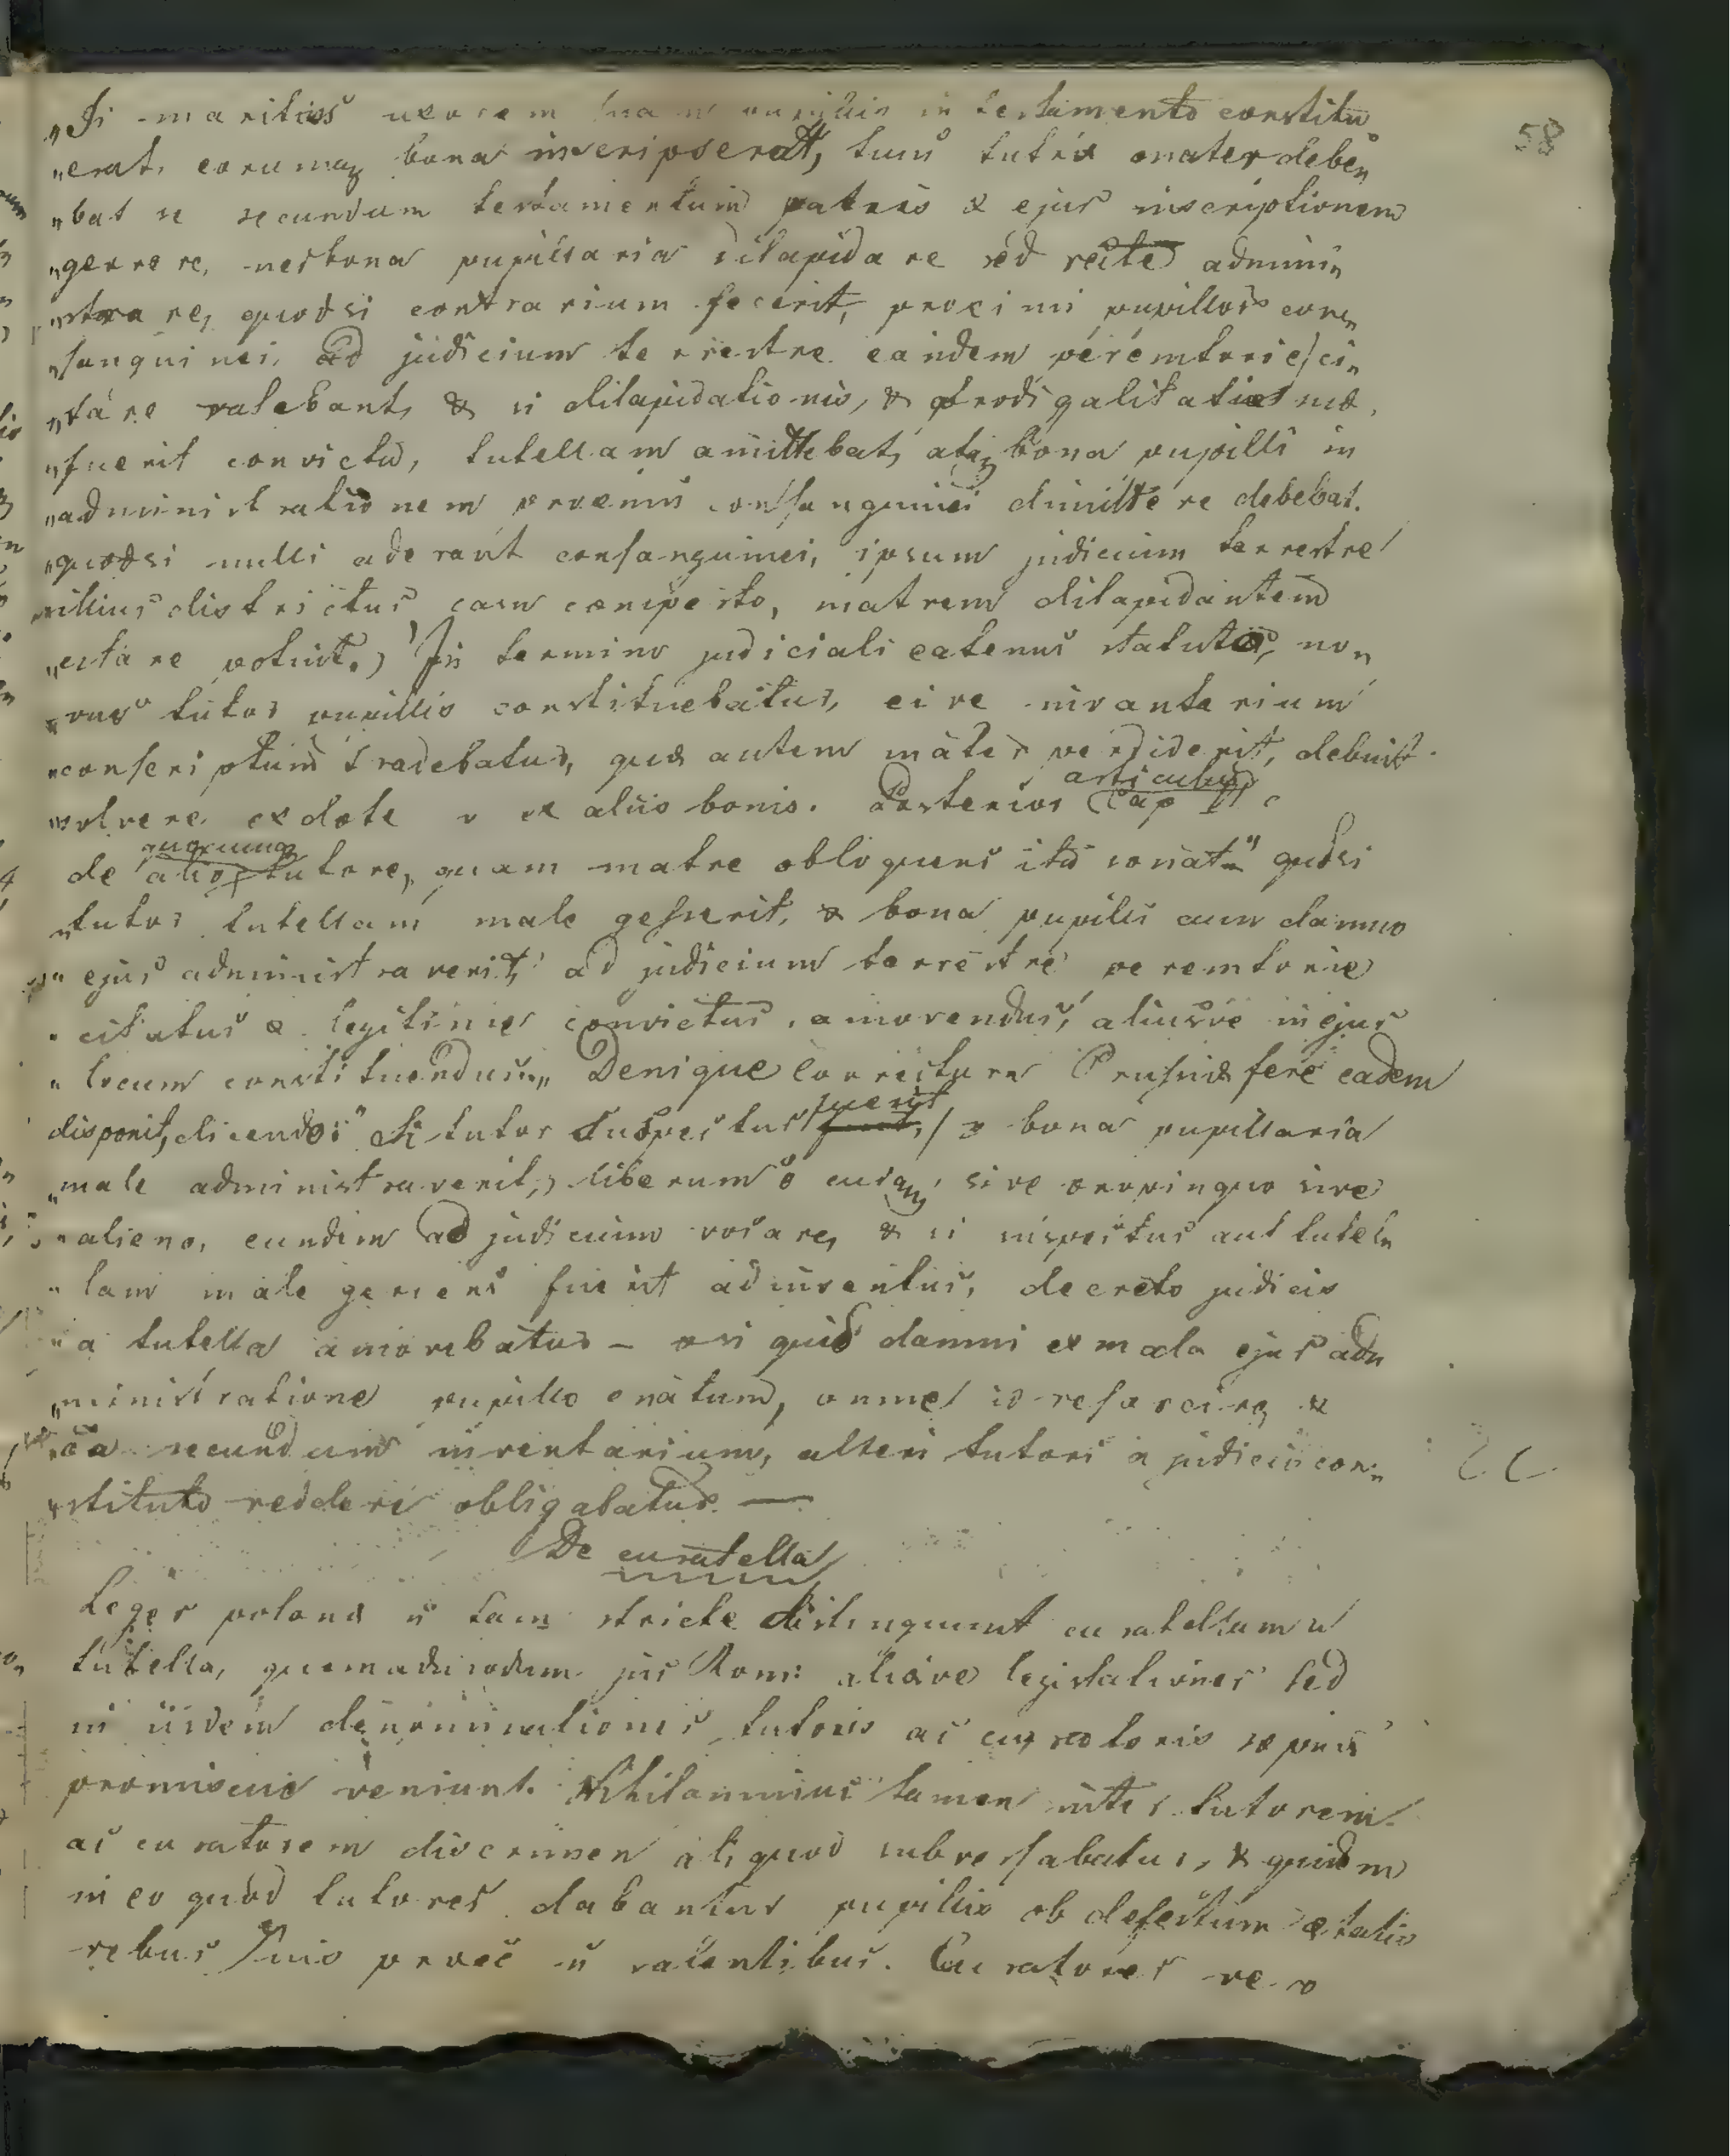 58
"Si maritus uxorem suam pupillis in testamento constitu
"erat, eorumq bona inscripserat, tunc tutrix mater debe„
"bat se secundum testamentum patris & ejus inscriptionem
"gerere, nec bona pupillaria dilapidare sed recte admini„
"strare, quodsi contrarium fecerit, proximi pupillor con„
"sanguinei, ad judicium terrestre eandem peremtorie ci„
"tare valebant, & si dilapidationis, & prodigalitatis suæ
"fuerit convicta, tutellam amittebat, atq bona pupilli in
"administrationem proximi consanguinei dimittere debebat.
"quodsi nulli aderant consanguinei, ipsum judicium terrestre
"illius districtus, casu comperto, matrem dilapidantem
"citare potuit.) In termino judiciali eatenus statuto, no„
"vus tutor pupillis constituebatur, ei inventarium
"conscriptum tradebatur, quæ autem mater perdiderit, debuit
"solvere ex dote v ex aliis bonis. Posterior articulus Cap
de quocunq alio tutore, quam matre obloquens ita sonat" quodsi
"tutor tutellam male gesserit, & bona pupilli cum damno
" ejus administraverit, ad judicium terrestre peremtorie
" citatus & legitime convictus, amovendus, aliusve in ejus
" locum constituendus„ Denique Correctura Prussiæ fere eadem
disponit, dicendo: "Si tutor suspectus fuerit, / & bona pupillaria
"male administraverit, liberum e cuiq, sive propinquo sive
"alieno, eundem ad judicium vocare, & si suspectus aut tutel„
" lam male gerens fuerit adinventus, decreto judicis
" a tutella amovebatur – & si quid damni ex mala ejus ad„
"ministratione pupillo enatum, omne id resarcire, &
ea secundum inventarium, alteri tutori a judicio con„
"stituto reddere obligabatur. —
De curatella
Leges polonæ ñ tam stricte distinguunt curatellam a
tutella, quemadmodum jus Rom: aliave legislationes sed
in iisdem denominationes tutoris ac curatoris sæpius
promiscue veniunt. Nihilominus tamen inter tutorem
ac curatorem discrimen aliquod subversabatur, & quidem
in eo quod tutores dabantur pupillis ob defectum ætatis
rebus suis præesse ñ valentibus. Curatores vero